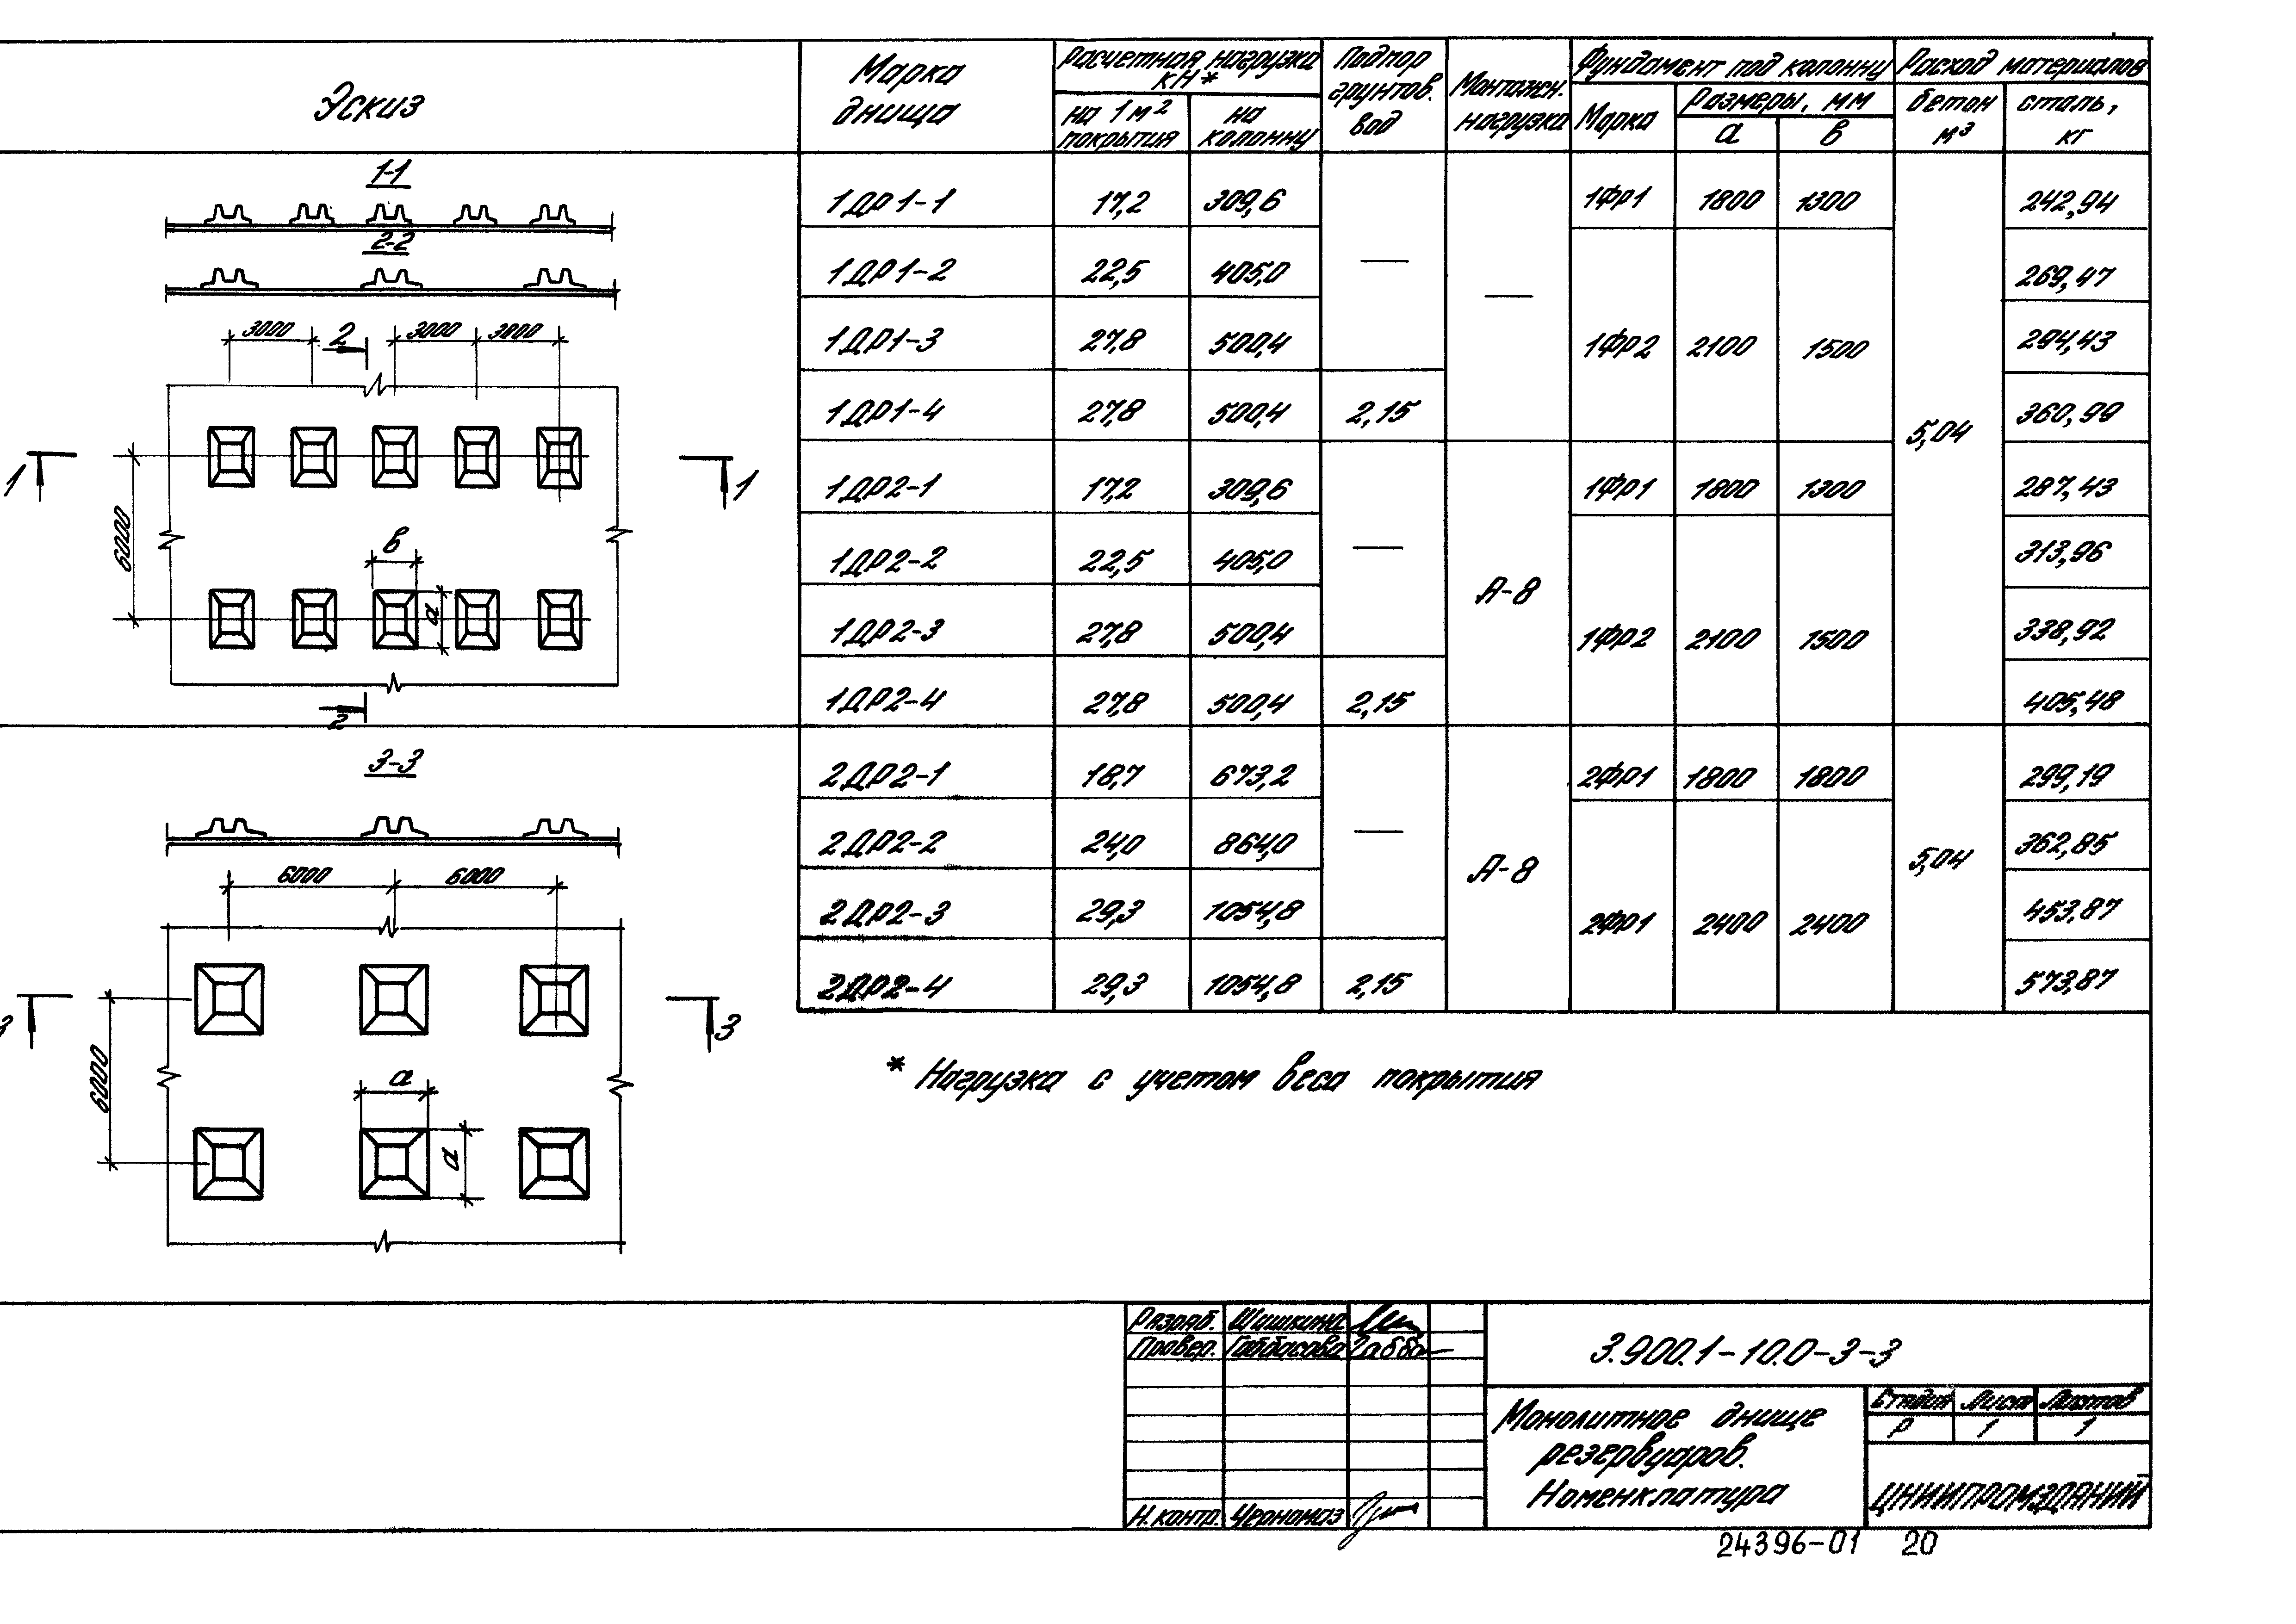 Эскиз
Марка днища
Расчетная нагрузка кН*
на 1 м² покрытия
на колонну
Подпор грунтов. вод
Монтажн. нагрузка
Фундамент под колонну
Марка
Размеры, мм
а
в
Расход материалов
бетон м³
сталь, кг
1ДР1-1 17,2 309,6 1ФР1 1800 1300 242,94
1ДР1-2 22,5 405,0 — — 269,47
1ДР1-3 27,8 500,4 1ФР2 2100 1500 294,43
1ДР1-4 27,8 500,4 2,15 5,04 360,99
1ДР2-1 17,2 309,6 1ФР1 1800 1300 287,43
1ДР2-2 22,5 405,0 — А-8 313,96
1ДР2-3 27,8 500,4 1ФР2 2100 1500 338,92
1ДР2-4 27,8 500,4 2,15 405,48
2ДР2-1 18,7 673,2 2ФР1 1800 1800 299,19
2ДР2-2 24,0 864,0 — А-8 5,04 362,85
2ДР2-3 29,3 1054,8 2ФР1 2400 2400 453,87
2ДР2-4 29,3 1054,8 2,15 573,87
1-1
2-2
3000 2 3000 3000
1 1
6000
в
а
2
3-3
6000 6000
3 3
6000
а
а
* Нагрузка с учетом веса покрытия
Разраб. Шишкина
Провер. Габбасова Габба
Н. контр. Черномаз
3.900.1-10.0-3-3
Монолитное днище
резервуаров.
Номенклатура
Стадия Лист Листов
Р 1 1
ЦНИИПРОМЗДАНИЙ
24396-01 20